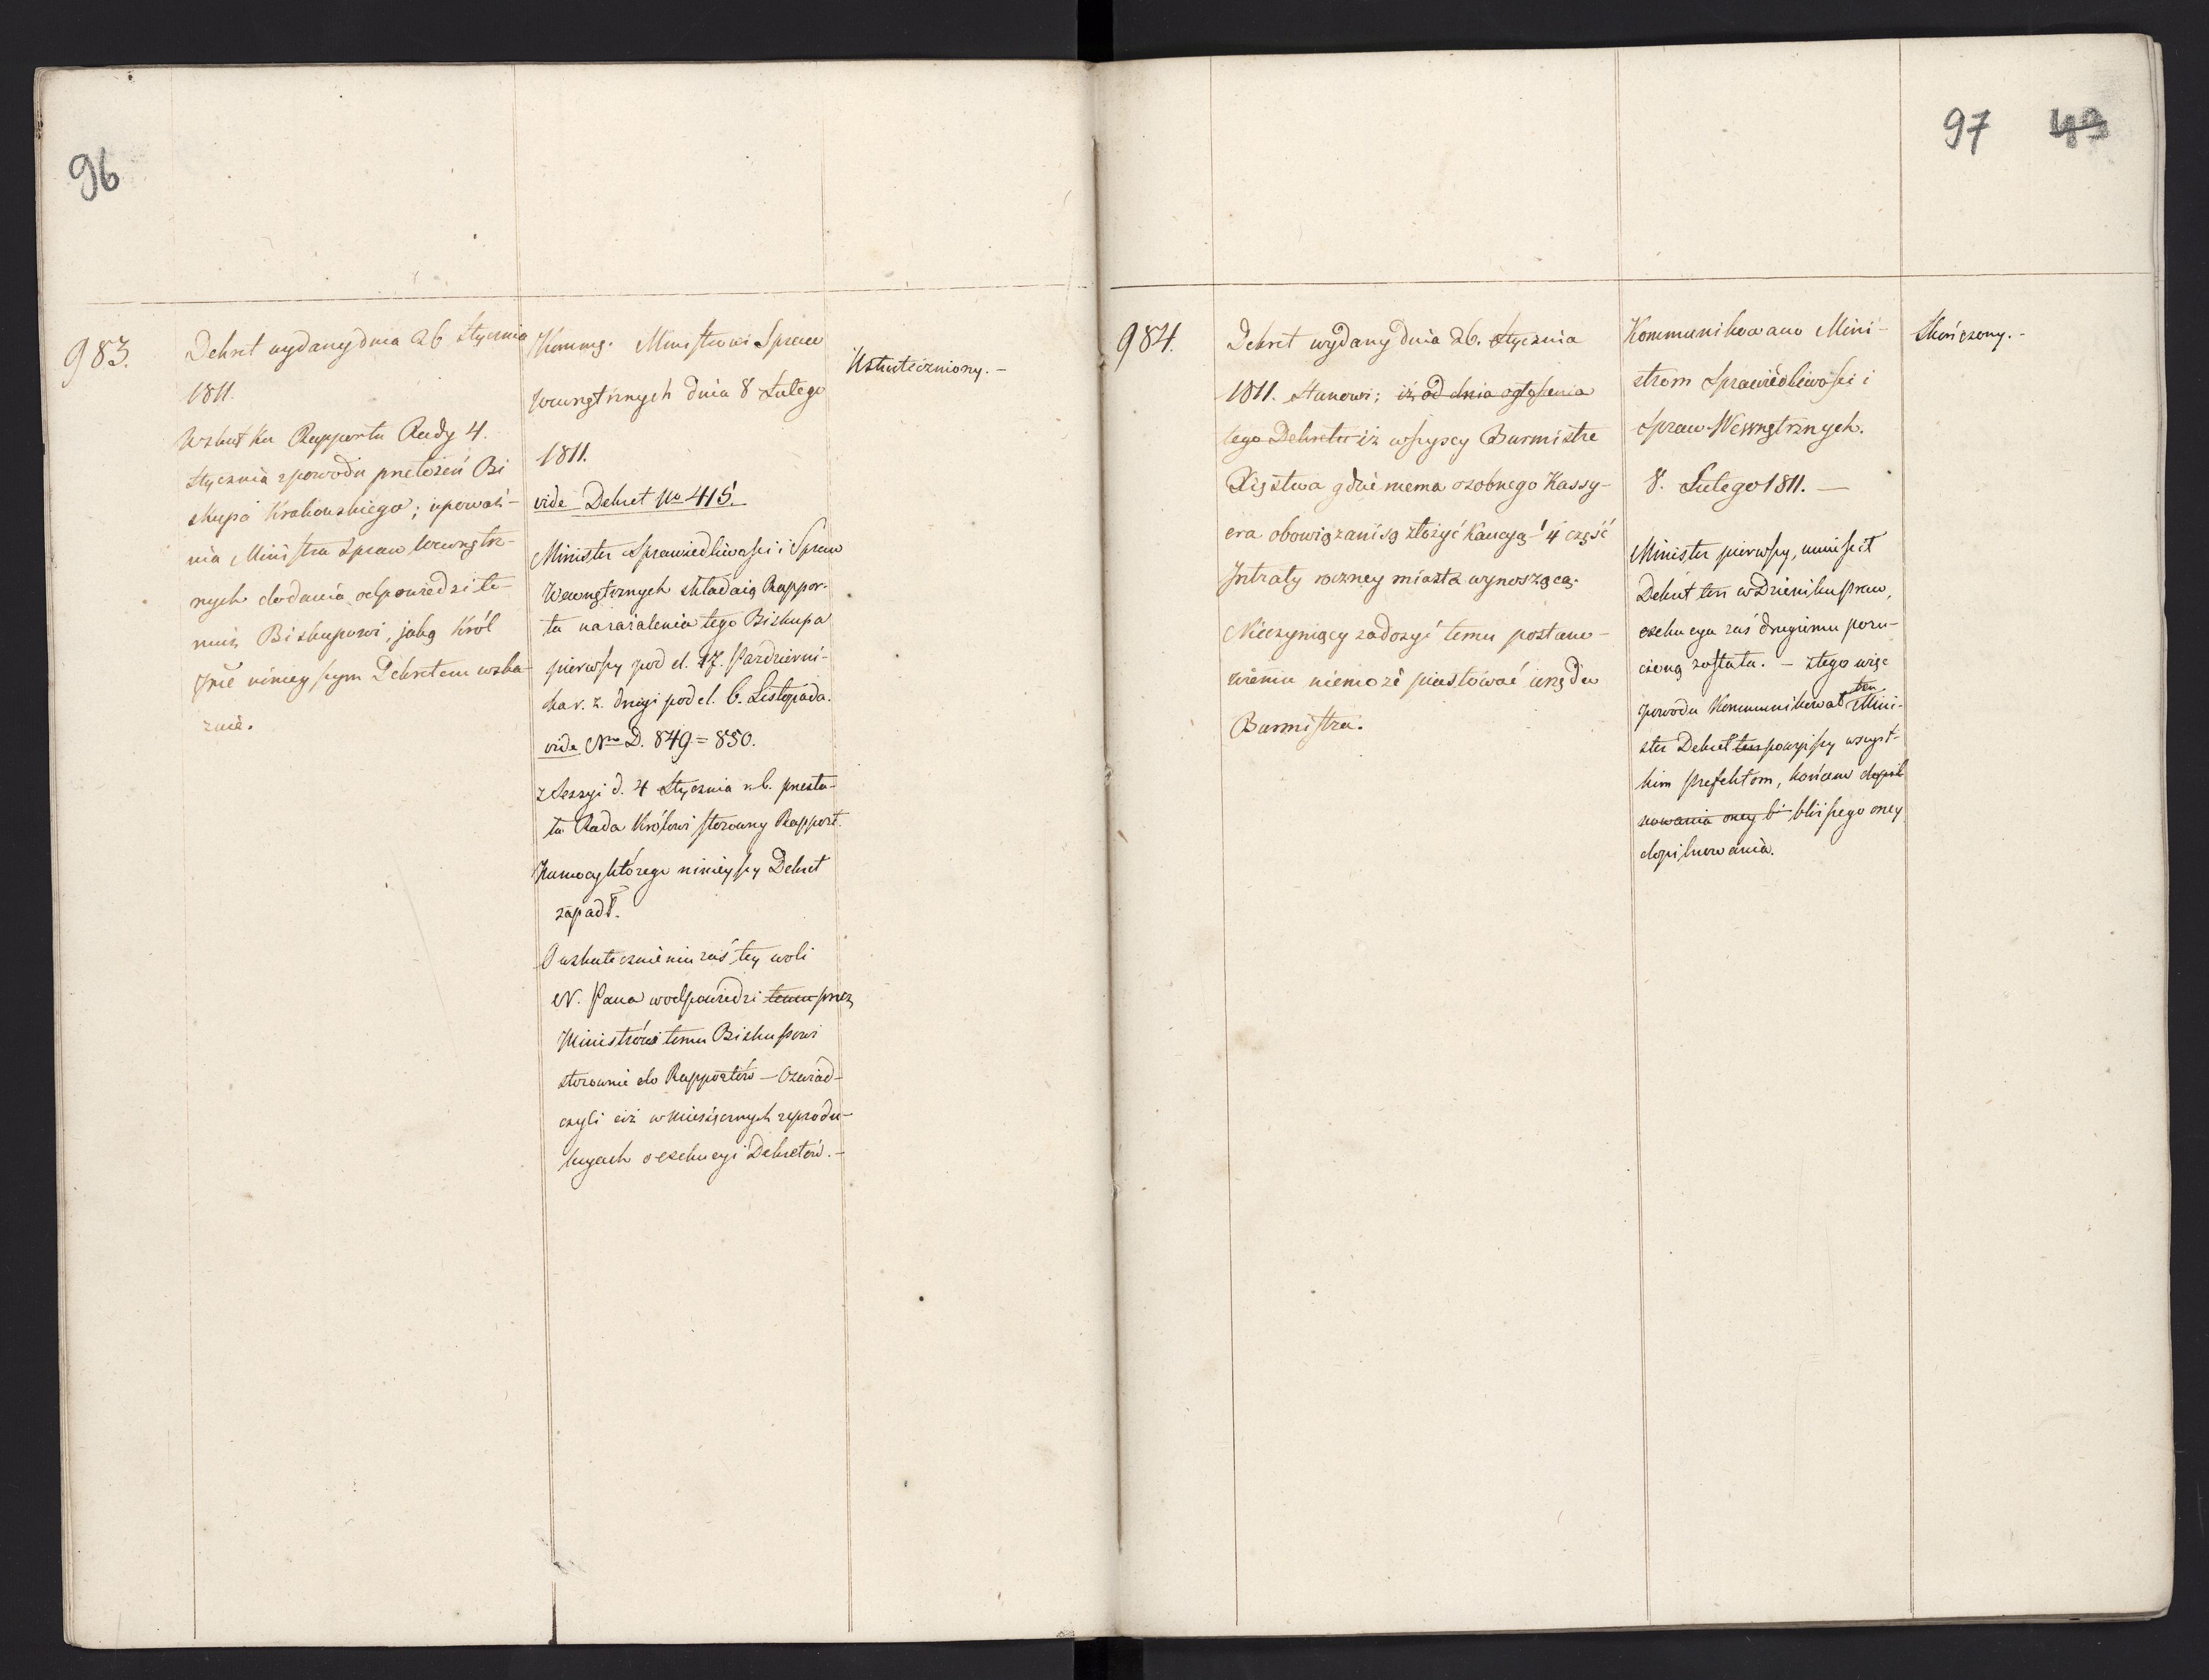 96
983.
Dekret wydany dnia 26 Stycznia
1811.
Wskutku Rapportu Rady 4.
Stycznia z powodu przełożeń Bi
skupa Krakowskiego; upoważ-
nia Ministra Spraw Wewnętrz-
nych do dania odpowiedzi te-
muż Biskupowi, jaką Król
Jmć ninieyszym Dekretem wska-
zuie.
Kommg. Ministrowi Spraw
Wewnętrznych dnia 8 Lutego
1811.
vide Dekret No 415.
Minister Sprawiedliwości i Spraw
Wewnętrznych składaią Rappor-
ta na zażalenia tego Biskupa
pierwszy pod d. 17. Października
r. z. drugi pod d. 6. Listopada.
vide Nro D. 849 = 850.
z Sessyi d. 4 Stycznia r. b. przesła-
ła Rada Królowi stosowny Rapport.
Na mocy którego ninieyszy Dekret
zapadł.
O uskutecznieniu zaś tey woli
N. Pana w odpowiedzi temu przez
Ministrów temu Biskupowi
stosownie do Rapportów — Oświad-
czyli ciż w Miesięcznych reprodu-
kcyach o exekucyi Dekretów. —
Uskuteczniony. —
97 49
984.
Dekret wydany dnia 26. Stycznia
1811. Stanowi; iż od dnia ogłoszenia
tego Dekretu iż wszyscy Burmistrze
Xięstwa gdzie niema osobnego Kassy-
era obowiązani są złożyć Kaucyą ¼ część
Intraty roczney miasta wynoszącą.
Nieczyniący zadosyć temu postano-
wieniu niemoże piastować urzędu
Burmistrza.
Kommunikowano Mini-
strom Sprawiedliwości i
Spraw Wewnętrznych.
8. Lutego 1811. —
Minister pierwszy, umieścił
Dekret ten w Dzieniku praw,
exekucya zaś drugiemu poru-
czoną została. — z tego więc
powodu Kommunikował ten Mini-
ster Dekret ten powyższy wszyst-
kim prefektom, końcem dopil
nowania oney bi bliższego oney
dopilnowania.
Skończony. —